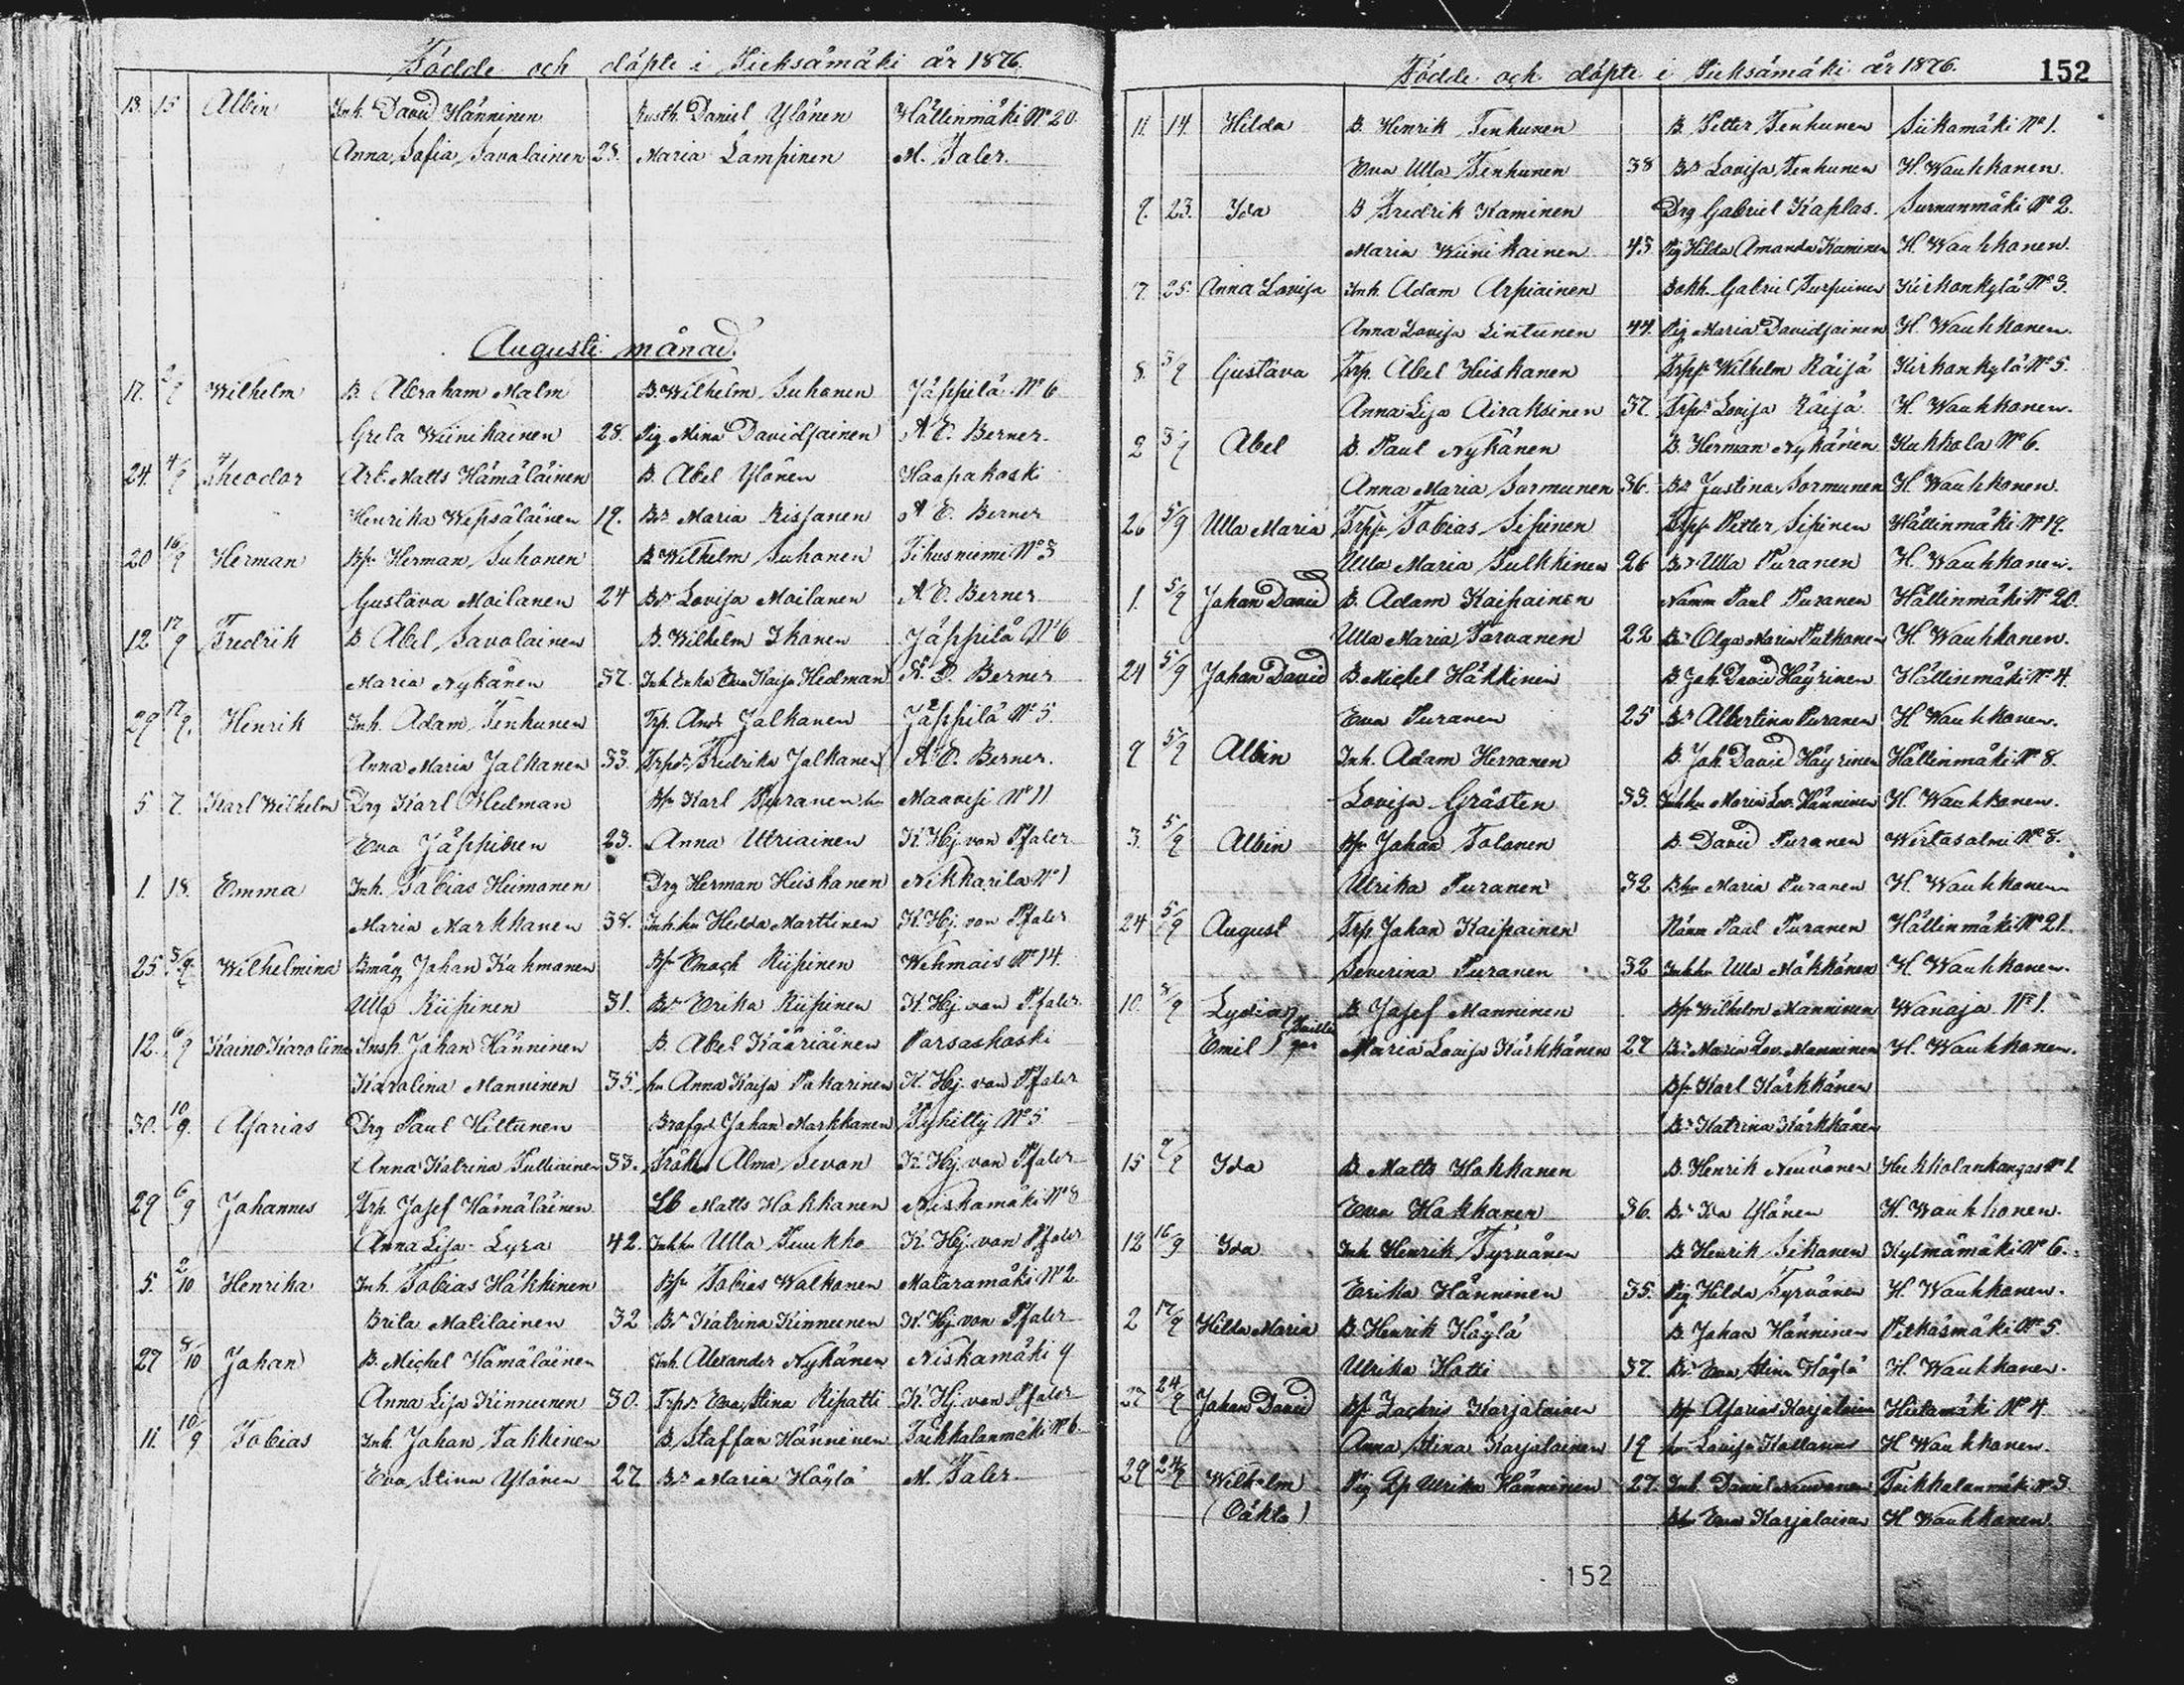 Födde och döpte i Pieksämäki år 1876
13. 15 Albin Inh. David Hänninen Rusth. Daniel Ylönen Hällinmäki No 20.
Anna Sofia Savolainen 28. Maria Lampinen M. Faler.
Augusti månad.
17. 2/9 Wilhelm B. Abraham Malm B. Wilhelm Suhonen Jäppilä No 6
Greta Wiinikainen 28. Pig. Mina Davidsainen A. E. Berner.
24. 4/9 Theodor Arb. Matts Hämäläinen B. Abel Ylönen Haapakoski
Henrika Wepsäläinen 19. Bdr Maria Rissanen A E. Berner
20 16/9 Herman Bf. Herman Suhonen B Wilhelm Suhonen Tihusniemi No 3
Gustava Moilanen 24 Bdr Lovisa Moilanen A E. Berner
12 17/9 Fredrik B Abel Savolainen B. Wilhelm Ihonen Jäppilä No 6
Maria Nykänen 37. Inh Enka Eva Kaisa Hedman A. E. Berner
29 17/9. Henrik Inh. Adam Tenhunen Trp. And. Jalkanen Jäppilä No 5.
Anna Maria Jalkanen 33. Trpdr Fredrika Jalkanen A E. Berner.
5 7. Karl Wilhelm Drg Karl Hedman Bf. Karl Puranen hu Maavesi No 11
Eva Jäppinen 23. Anna Utriainen K. Hj. von Pfaler
1. 18. Emma Inh. Tobias Heimonen Drg Herman Heiskanen Nikkarila No 1
Maria Markkanen 38. Inh. hu Hedda Marttinen K. Hj. von Pfaler
25 3/9. Wilhelmina Bmåg Johan Kuhmonen Bf. Enoch Riipinen Wehmais No 14.
Ulla Riipinen 31. Bdr Erika Riipinen K. Hj. von Pfaler
12. 6/9 Kaino Karolina Insp. Johan Hänninen B. Abel Kääriäinen Parsaskoski
Karolina Manninen 35. hu Anna Kaisa Pakarinen K. Hj. von Pfaler
30. 10/9. Asarias Drg Paul Hiltunen Brofgd Johan Markkanen Pyhitty No 5
Anna Katrina Tulliainen 33. Frök. Alma Sevon K. Hj. von Pfaler
29 6/9 Johannes Trp. Josef Hämäläinen Lb Matts Hokkanen Niskamäki No 8
Anna Lisa Lyra 42. Inh. hu Ulla Puukko K. Hj. von Pfaler
5. 2/10 Henrika Inh. Tobias Häkkinen Bf. Tobias Walkonen Nataramäki No 2.
Brita Matilainen 32 Bdr Katrina Kinnunen K. Hj. von Pfaler
27 8/10 Johan B. Michel Hämäläinen Inh. Alexander Nykänen Niskamäki 9
Anna Lisa Kinnunen 30. Trpdr Eva Stina Ripatti K. Hj. von Pfaler
11. 10/9 Tobias Inh. Johan Takkinen B. Staffan Hänninen Toikkalanmäki No 6.
Eva Stina Ylönen 27 Bdr Maria Höglö M. Faler
Födde och döpte i Pieksämäki år 1876. 152
11. 14. Hilda B. Henrik Tenhunen B. Petter Tenhunen Siikamäki No 1.
Eva Ulla Tenhunen 38 Bdr Lovisa Tenhunen H. Wauhkonen.
9. 23. Ida B Fredrik Kaminen Drg Gabriel Kaplas. Surnunmäki No 2.
Maria Wiinikainen 43 Pig Hilda Amanda Kaminen H. Wauhkonen.
7. 25. Anna Lovisa Inh. Adam Arpiainen Bokh. Gabriel Turpuinen Kirkonkylä No 3.
Anna Lovisa Lintunen 44. Pig. Maria Davidsainen H. Wauhkonen.
8. 3/9 Gustava Trp. Abel Heiskanen Trpf. Wilhelm Räisä Kirkonkylä No 5.
Anna Lisa Airaksinen 37. Trpdr Lovisa Räisä H. Wauhkonen.
2 3/9 Abel B. Paul Nykänen B. Herman Nykänen Kukkola No 6.
Anna Maria Sormunen 36. Bdr Justina Sormunen H. Wauhkonen.
26 5/9 Ulla Maria Trpf. Tobias Sipinen Trpf. Petter Sipinen Hällinmäki No 19.
Ulla Maria Pulkkinen 26 Bdr Ulla Puranen H. Wauhkonen.
1. 5/9 Johan David B. Adam Kaipainen Nämn Paul Puranen Hällinmäki No 20.
Ulla Maria Tarvanen 22 Bdr Olga Maria Puthonen H. Wauhkonen.
24 5/9 Johan David B. Michel Häkkinen B Joh. David Häyrinen Hällinmäki No 4.
Eva Puranen 25 Bdr Albertina Puranen H Wauhkonen.
9 5/9 Albin Inh. Adam Herranen B. Joh. David Häyrinen Hällinmäki No 8.
Lovisa Grästen 33. Inh hu Maria Lov. Hänninen H. Wauhkonen.
3. 5/9 Albin Bf. Johan Tolonen B. David Puranen Wirtasalmi No 8.
Ulrika Puranen 32 Bhu Maria Puranen H. Wauhkonen
24 5/9 August Trp. Johan Kaipainen Nämn Paul Puranen Hällinmäki No 21.
Severina Puranen 32 Inh hu Ulla Mähkönen H. Wauhkonen.
10. 8/9 Lydia B. Josef Manninen Bf. Wilhelm Manninen Wanaja No 1.
Emil Maria Lovisa Kärkkänen 27 Bdr Maria Lov. Manninen H. Wauhkonen.
Bf. Karl Kärkkänen
Bdr Katrina Kärkkänen
15 9/9 Ida B. Matts Hokkanen B. Henrik Neuvonen Heikkolankangas No 1
Eva Hokkanen 36. Bdr Eva Ylönen H. Wauhkonen.
12 16/9 Ida Inh Henrik Tyrvänen B Henrik Sikanen Kylmämäki No 6.
Erika Hänninen 35. Pig. Hilda Tyrvänen H. Wauhkonen.
2 17/9 Hilda Maria B. Henrik Höglö B. Johan Hänninen Pitkäsmäki No 5.
Ulrika Hotti 37. Bdr Eva Stina Höglö H. Wauhkonen.
27 24/9 Johan David Bf. Zachris Karjalainen Bf. Asarias Karjalainen Hietamäki No 4
Anna Stina Karjalainen 19 hu Lovisa H Wauhkonen.
29 24/9 Wilhelm Pig Lp Ulrika Hänninen 27. Inh. Daniel Neuvonen Toikkalanmäki No 3
(Oäkta) Bhu Eva Karjalainen H Wauhkonen.
152